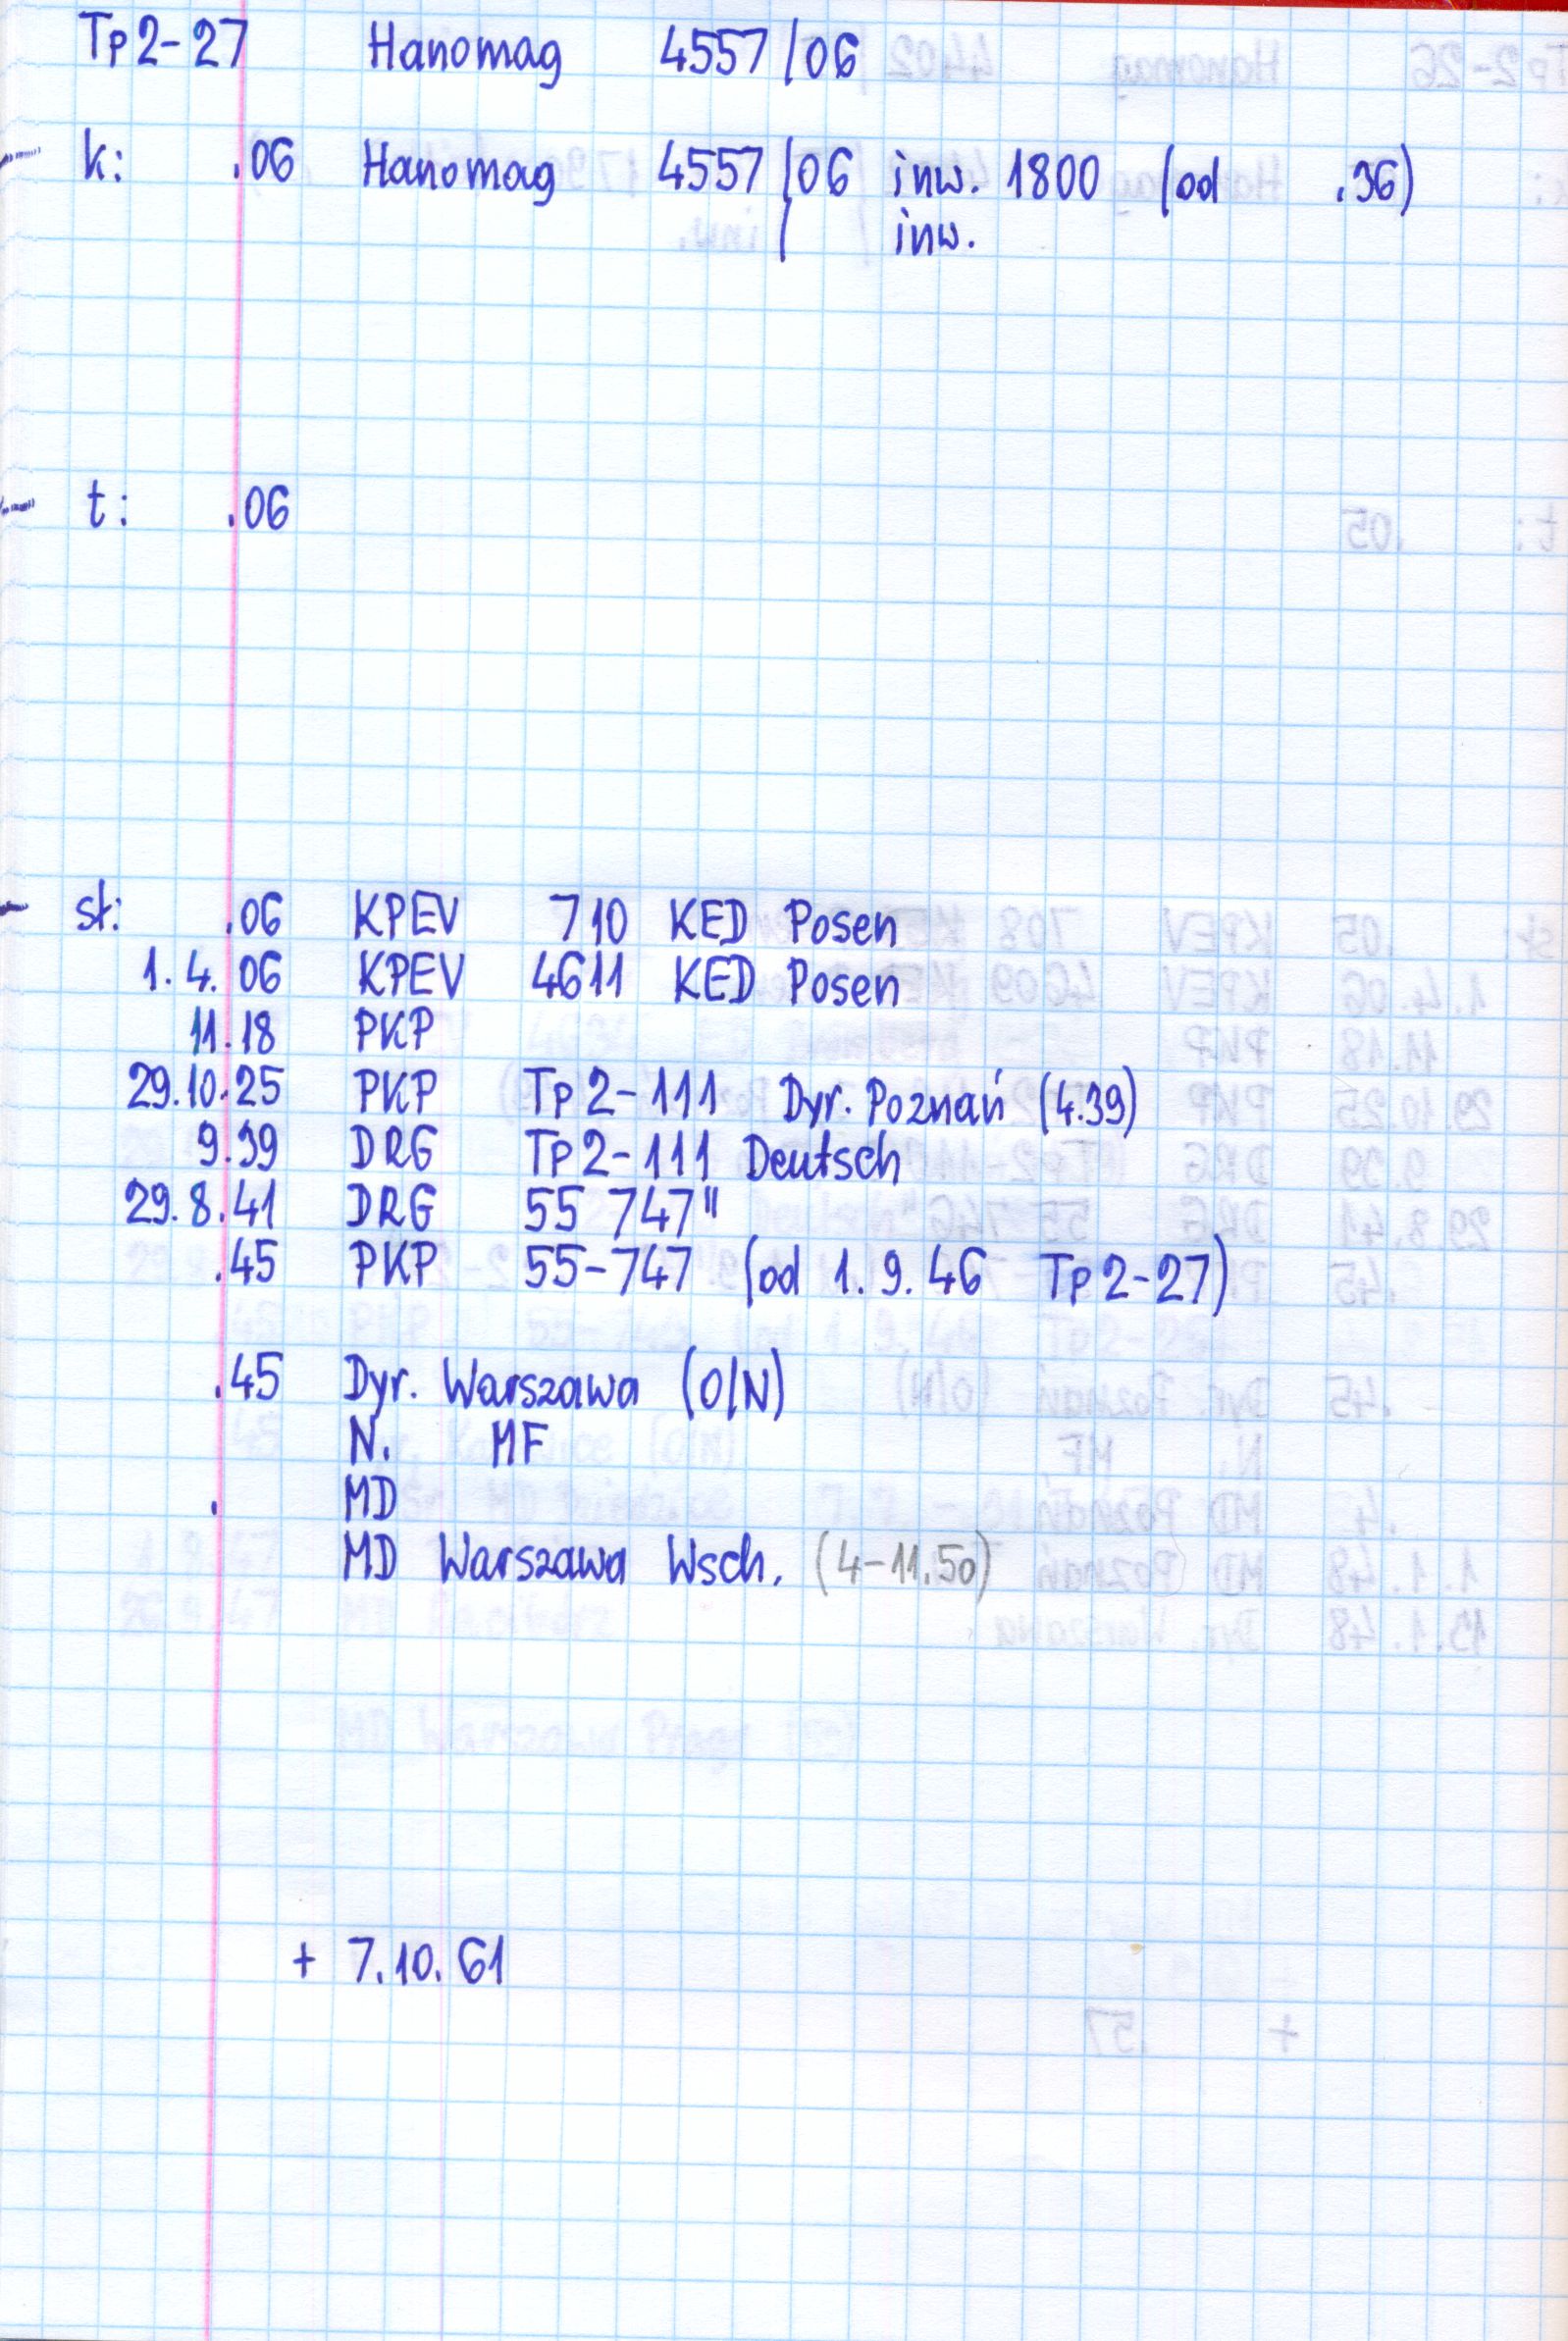 Tp2-27 Hanomag 4557/06
k: .06 Hanomag 4557/06 inw. 1800 (od .36)
/ inw.
t: .06
st: .06 KPEV 710 KED Posen
1.4.06 KPEV 4611 KED Posen
11.18 PKP
29.10.25 PKP Tp2-111 Dyr. Poznań (4.39)
9.39 DRG Tp2-111 Deutsch
29.8.41 DRG 55 747"
.45 PKP 55-747 (od 1.9.46 Tp2-27)
.45 Dyr. Warszawa (O/N)
N. MF
. MD
MD Warszawa Wsch. (4-11.50)
+ 7.10.61